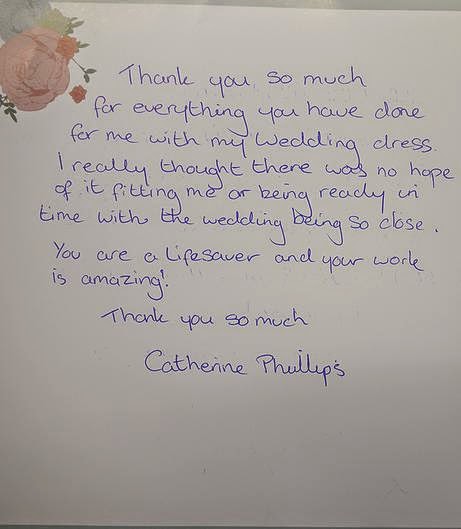 Thank you so much
for everything you have done
for me with my wedding dress.
I really thought there was no hope
of it fitting me or being ready in
time with the wedding being so close.
You are a lifesaver and your work
is amazing!
Thank you so much
Catherine Phillips